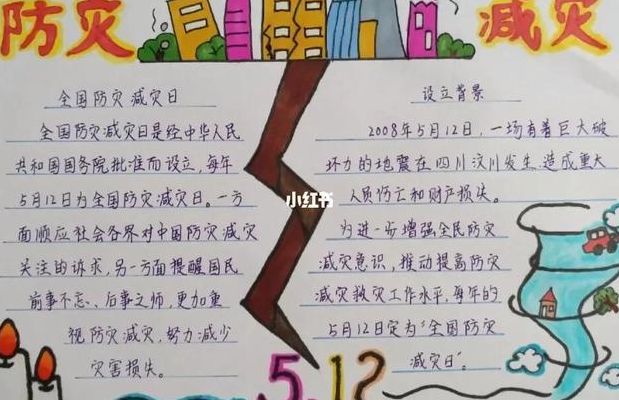 防灾 减灾
全国防灾减灾日
全国防灾减灾日是经中华人民
共和国国务院批准而设立,每年
5月12日为全国防灾减灾日。一方
面顺应社会各界对中国防灾减灾
关注的诉求,另一方面提醒国民
前事不忘、后事之师,更加重
视防灾减灾,努力减少
灾害损失。
设立背景
2008年5月12日,一场有着巨大破
坏力的地震在四川汶川发生,造成重大
人员伤亡和财产损失。
为进一步增强全民防灾
减灾意识,推动提高防灾
减灾救灾工作水平,每年的
5月12日定为“全国防灾
减灾日”。
小红书
5.12